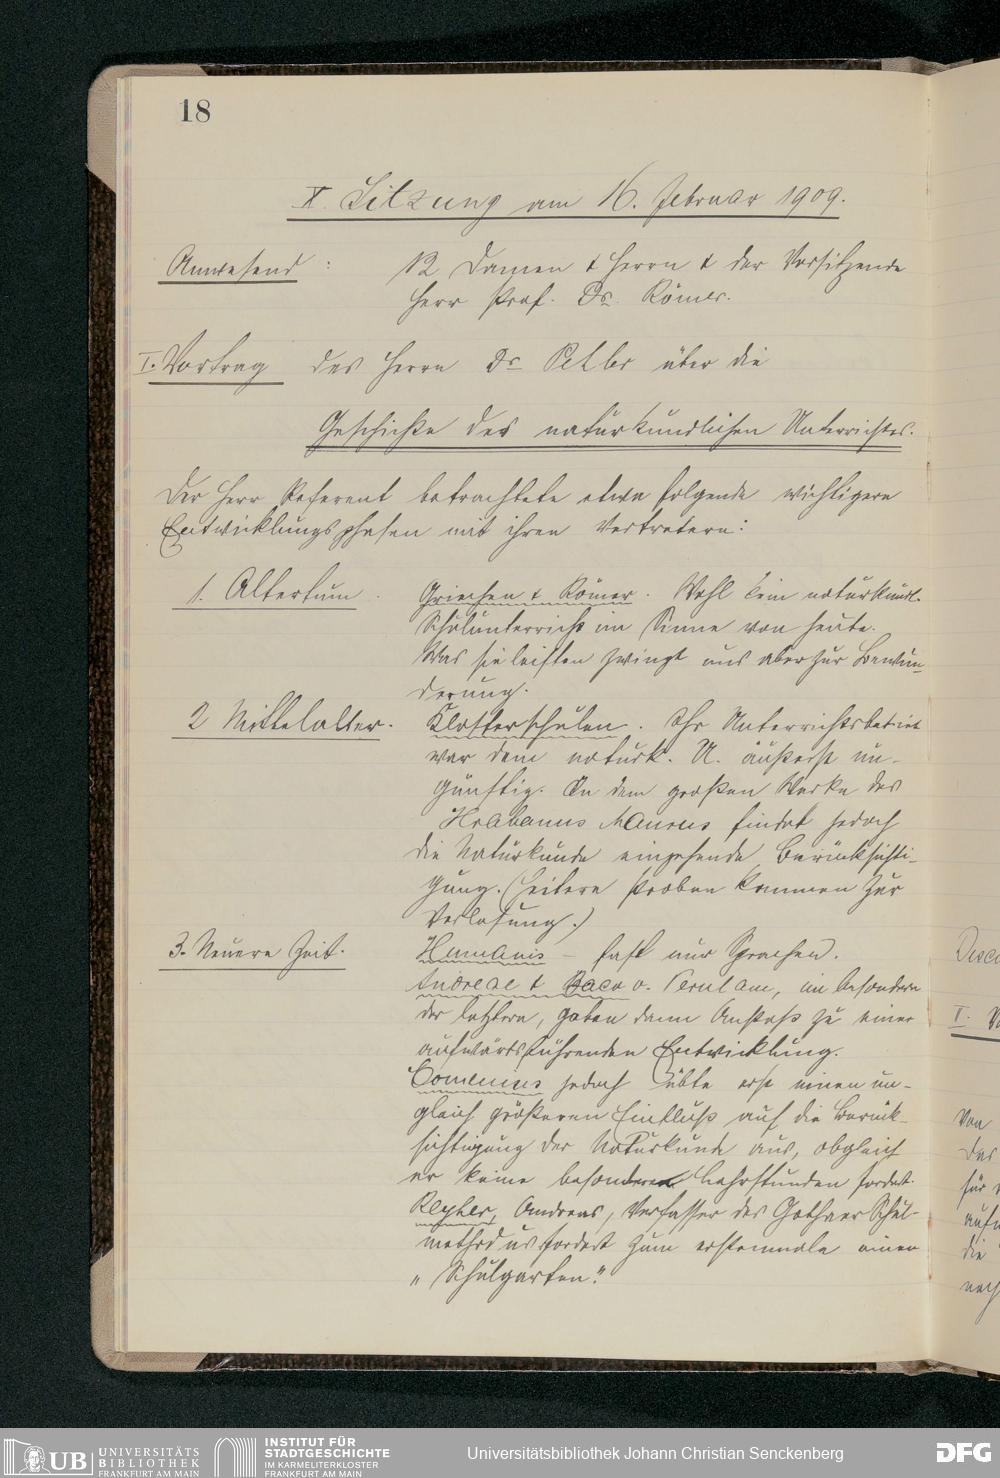 18
X. Sitzung am 16. Februar 1909.
Anwesend : 12 Damen & Herrn & der Vorsitzende
Herr Prof. Dr. Römer.
I. Vortrag des Herrn Dr über die
Geschichte des naturkundlichen Unterrichtes.
Der Herr Referent betrachtete etwa folgende wichtigere
Entwicklungsphasen mit ihren Vertretern:
1. Altertum. Griechen & Römer. Wohl kein naturkundl.
Schulunterricht im Sinne von heute.
Was sie leisten zwingt uns aber zur Bewun-
derung.
2 Mittelalter. Klosterschulen. Ihr Unterrichtsbetrieb
war dem naturk. U. äußerst un-
günstig. In dem großen Werke des
Hrabanus Maurus findet jedoch
die Naturkunde eingehende Berücksichti-
gung. (Heitere Proben kommen zur
Verlesung.)
3. Neuere Zeit. Humanis – fast nur Sprachen.
Andreae & Baco v. Verulam, im besondern
der letztere, gaben dann Anstoß zu einer
aufwärtsführenden Entwicklung.
Comenius jedoch übte erst einen un-
gleich größeren Einfluß auf die Berück-
sichtigung der Naturkunde aus, obgleich
er keine besonderen Lehrstunden fordert.
Reyher, Andreas, Verfasser des Gothaer Schul-
methodus fordert zum erstenmale einen
„Schulgarten."
I.
von
das
für
die
UB UNIVERSITÄTS
BIBLIOTHEK
FRANKFURT AM MAIN
INSTITUT FÜR
STADTGESCHICHTE
IM KARMELITERKLOSTER
FRANKFURT AM MAIN
Universitätsbibliothek Johann Christian Senckenberg
DFG